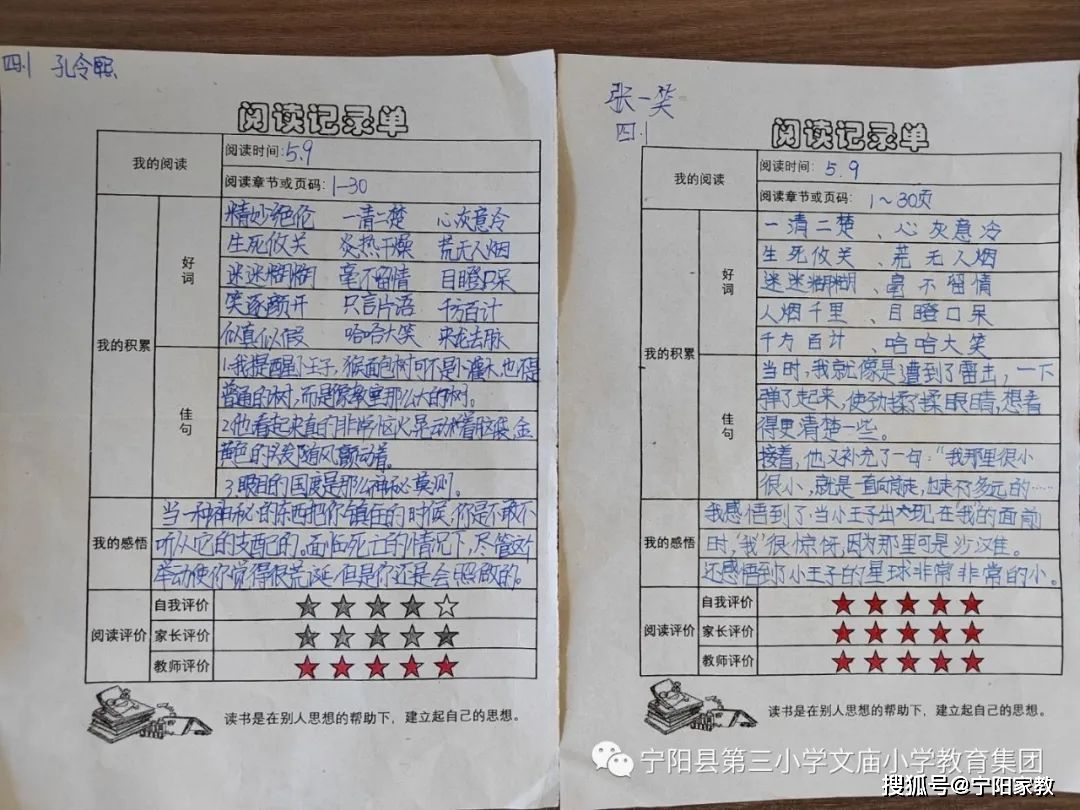 四.1 孔令熙
阅读记录单
我的阅读
阅读时间:5.9
阅读章节或页码:1—30
我的积累
好词
精妙绝伦 一清二楚 心灰意冷
生死攸关 炎热干燥 荒无人烟
迷迷糊糊 毫不留情 目瞪口呆
笑逐颜开 只言片语 千方百计
似真似假 哈哈大笑 来龙去脉
佳句
1.我提醒小王子,猴面包树可不是小灌木,也不是
普通的树,而是像教堂那么大的树。
2.他看起来真的非常恼火,晃动着脑袋,金
黄色的头发随风颤动着。
3.眼泪的国度是那么神秘莫测。
我的感悟
当一种神秘的东西把你镇住的时候,你是不敢不
听从它的支配的。面临死亡的情况下,尽管这
举动使你觉得很荒诞,但是你还是会照做的。
阅读评价
自我评价
家长评价
教师评价
读书是在别人思想的帮助下,建立起自己的思想。
张一笑
四.1
阅读记录单
我的阅读
阅读时间: 5.9
阅读章节或页码: 1~30页
我的积累
好词
一清二楚、心灰意冷
生死攸关、荒无人烟
迷迷糊糊、毫不留情
人烟千里、目瞪口呆
千方百计、哈哈大笑
佳句
当时,我就像是遭到了雷击,一下
弹了起来,使劲揉了揉眼睛,想看
得更清楚一些。
接着,他又补充了一句:“我那里很小
很小,就是一直向前走,也走不了多远的……
我的感悟
我感悟到了:当小王子出现在我的面前
时,“我”很惊讶,因为那里可是沙漠。
还感悟到了小王子的星球非常非常的小。
阅读评价
自我评价
家长评价
教师评价
读书是在别人思想的帮助下,建立起自己的思想。
宁阳县第三小学文庙小学教育集团
搜狐号@宁阳家教